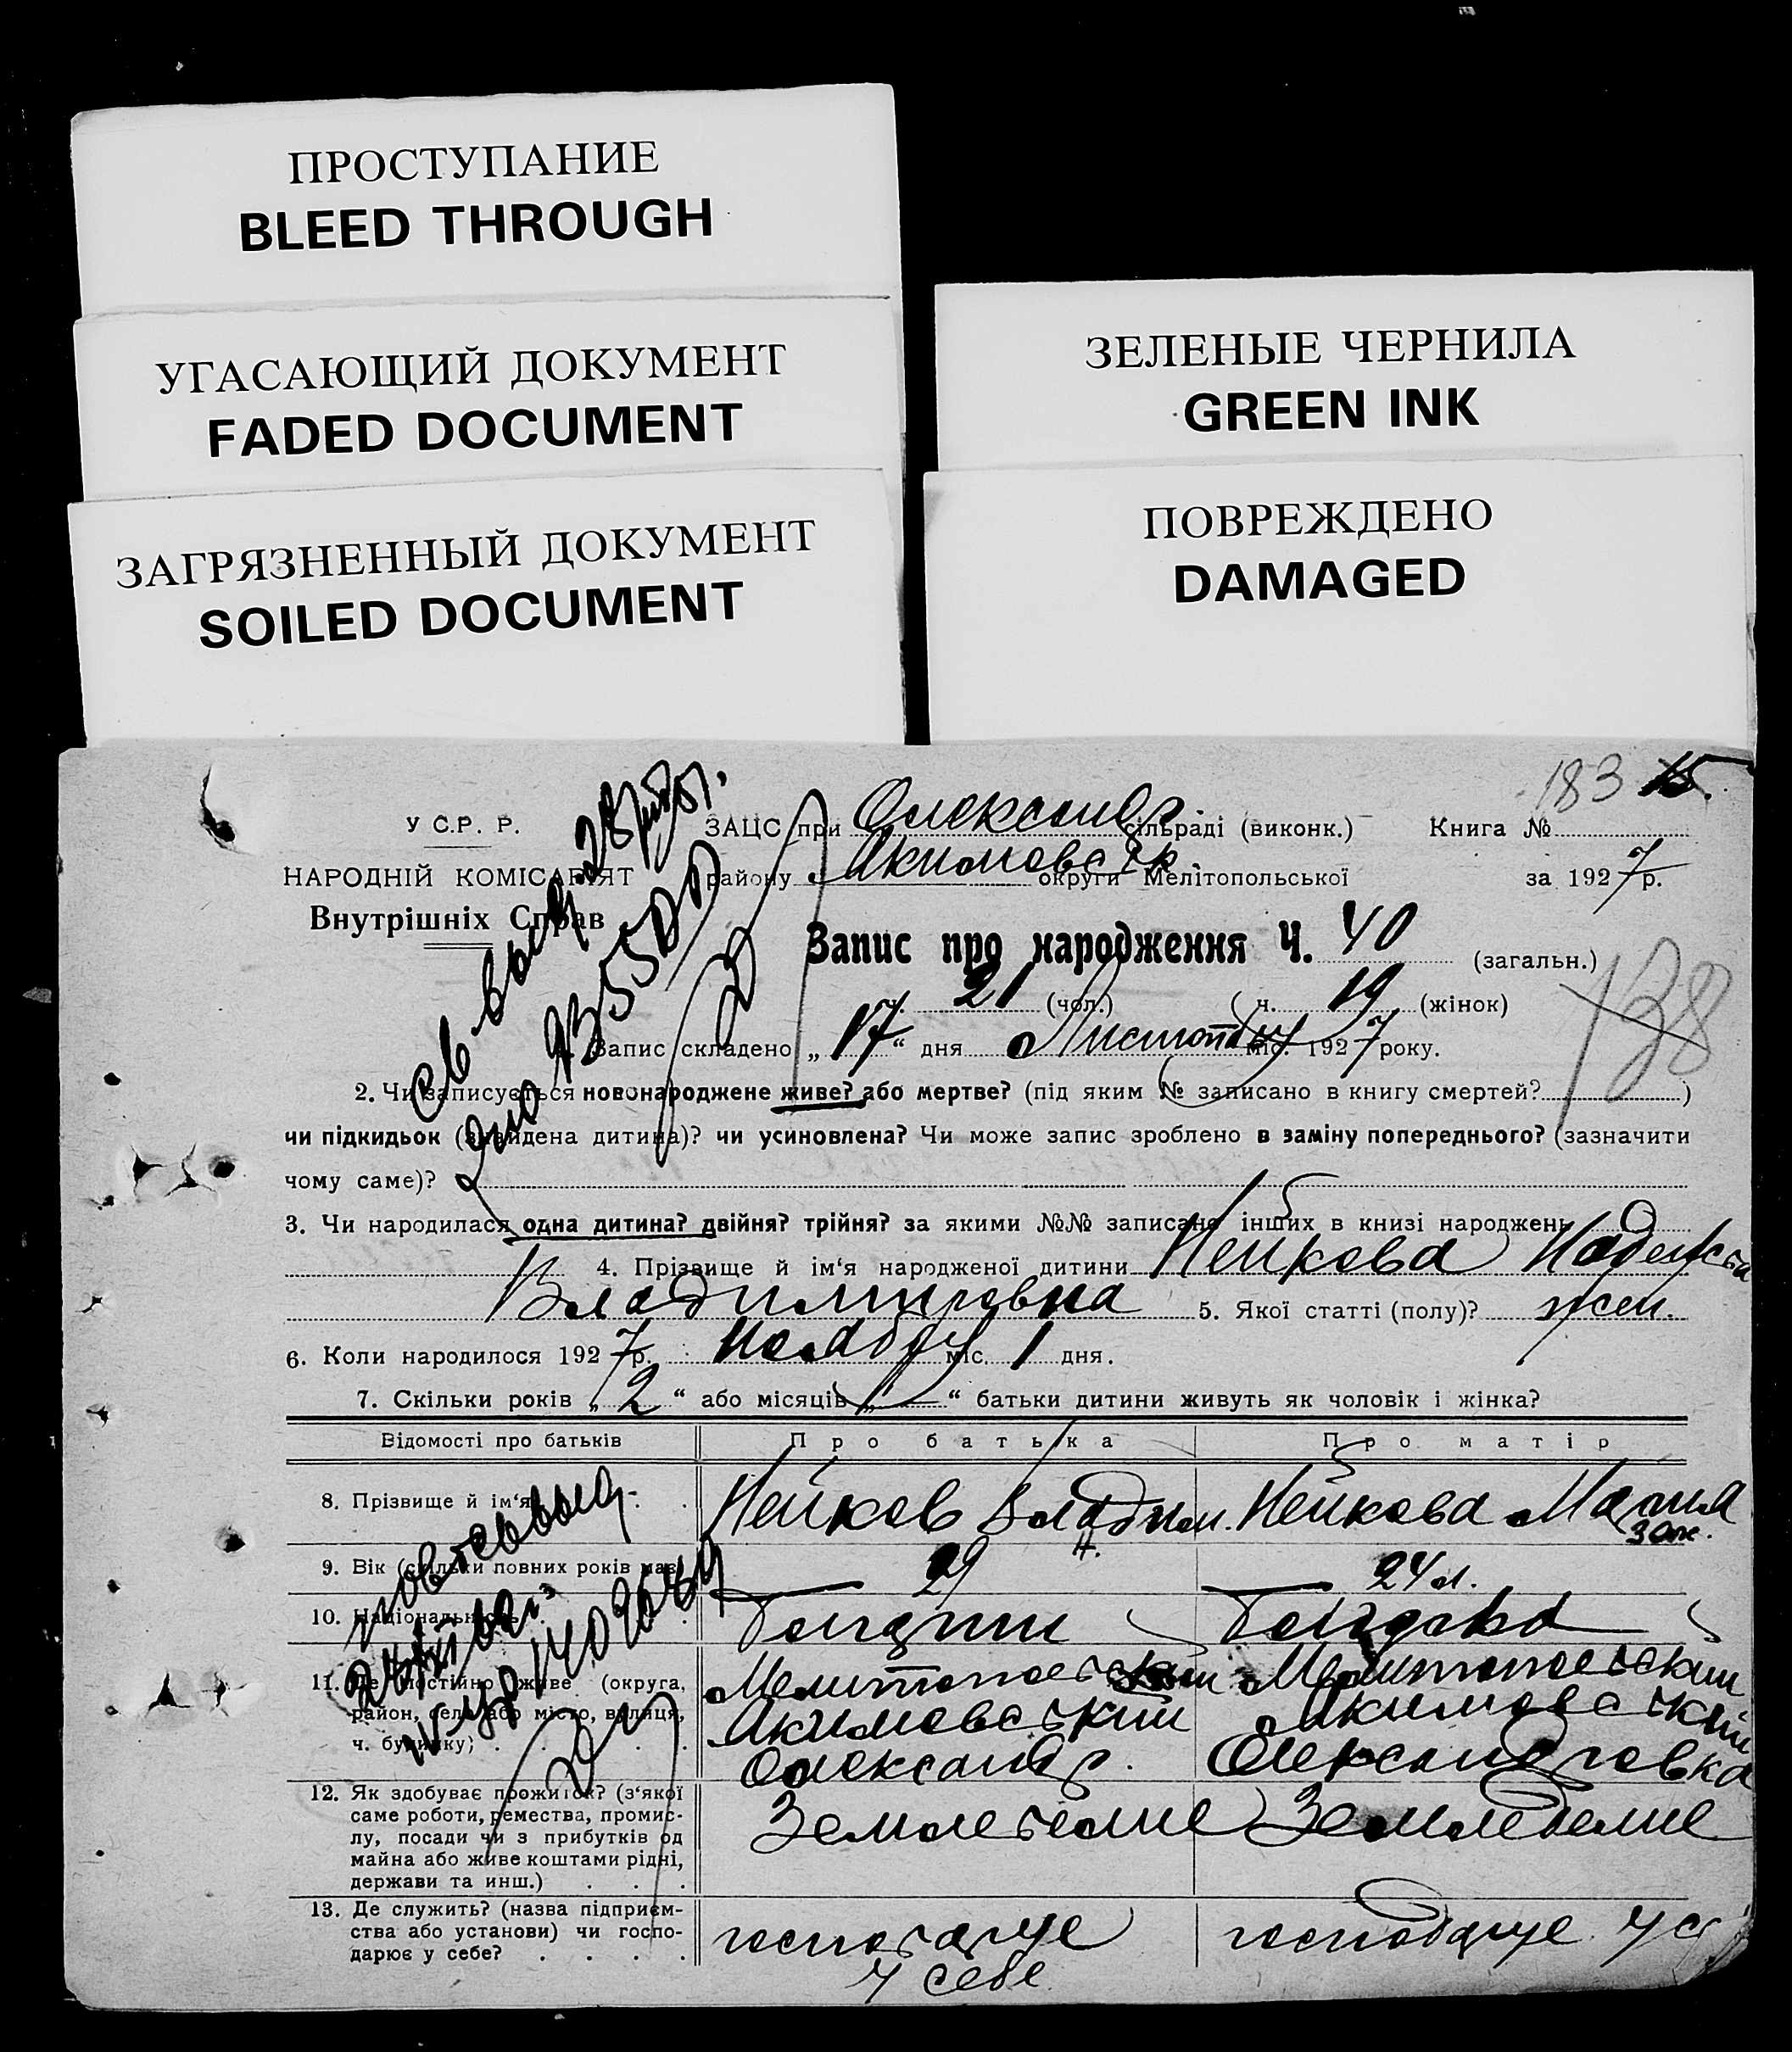 ПРОСТУПАНИЕ
BLEED THROUGH
УГАСАЮЩИЙ ДОКУМЕНТ
FADED DOCUMENT
ЗАГРЯЗНЕННЫЙ ДОКУМЕНТ
SOILED DOCUMENT
ЗЕЛЕНЫЕ ЧЕРНИЛА
GREEN INK
ПОВРЕЖДЕНО
DAMAGED
183 15.
У С.Р. Р.
НАРОДНІЙ КОМІСАРІЯТ
Внутрішніх Справ
ЗАЦС при Олександр. сільраді (виконк.) Книга №
району Акимовськ. округи Мелітопольської за 1927 р.
Запис про народження Ч. 40 (загальн.)
ч. 21 (чол.) (ч. 19 (жінок)
138
Запис складено „17“ дня Листопаду міс. 1927 року.
2. Чи записується новонароджене живе? або мертве? (під яким № записано в книгу смертей? )
чи підкидьок (знайдена дитина)? чи усиновлена? Чи може запис зроблено в заміну попереднього? (зазначити
чому саме)?
3. Чи народилася одна дитина? двійня? трійня? за якими №№ записано інших в книзі народжень
4. Прізвище й ім'я народженої дитини Нейкова Надежда
Владимировна 5. Якої статті (полу)? жен.
6. Коли народилося 1927 р. ноября міс. 1 дня.
7. Скільки років „2“ або місяців „—“ батьки дитини живуть як чоловік і жінка?
Відомості про батьків Про батька Про матір
8. Прізвище й ім'я Нейков Владим. Н. Нейкова Мария Зах.
9. Вік (скільки повних років має) 29 24 л.
10. Національність Болгарин Болгарка
11. Де постійно живе (округа, район, село або місто, вулиця, ч. будинку)
Мелитопольский Акимовський Олександр.
Мелитопольский Акимовський Олександровка
12. Як здобуває прожиток? (з'якої
саме роботи, ремества, промис-
лу, посади чи з прибутків од
майна або живе коштами рідні,
держави та инш.)
Земледелие Земледелие
13. Де служить? (назва підприєм-
ства або установи) чи госпо-
дарює у себе?
господарує у себе
господарує у